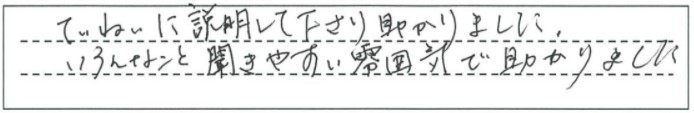 ていねいに説明して下さり助かりました。
いろんなこと聞きやすい雰囲気で助かりました